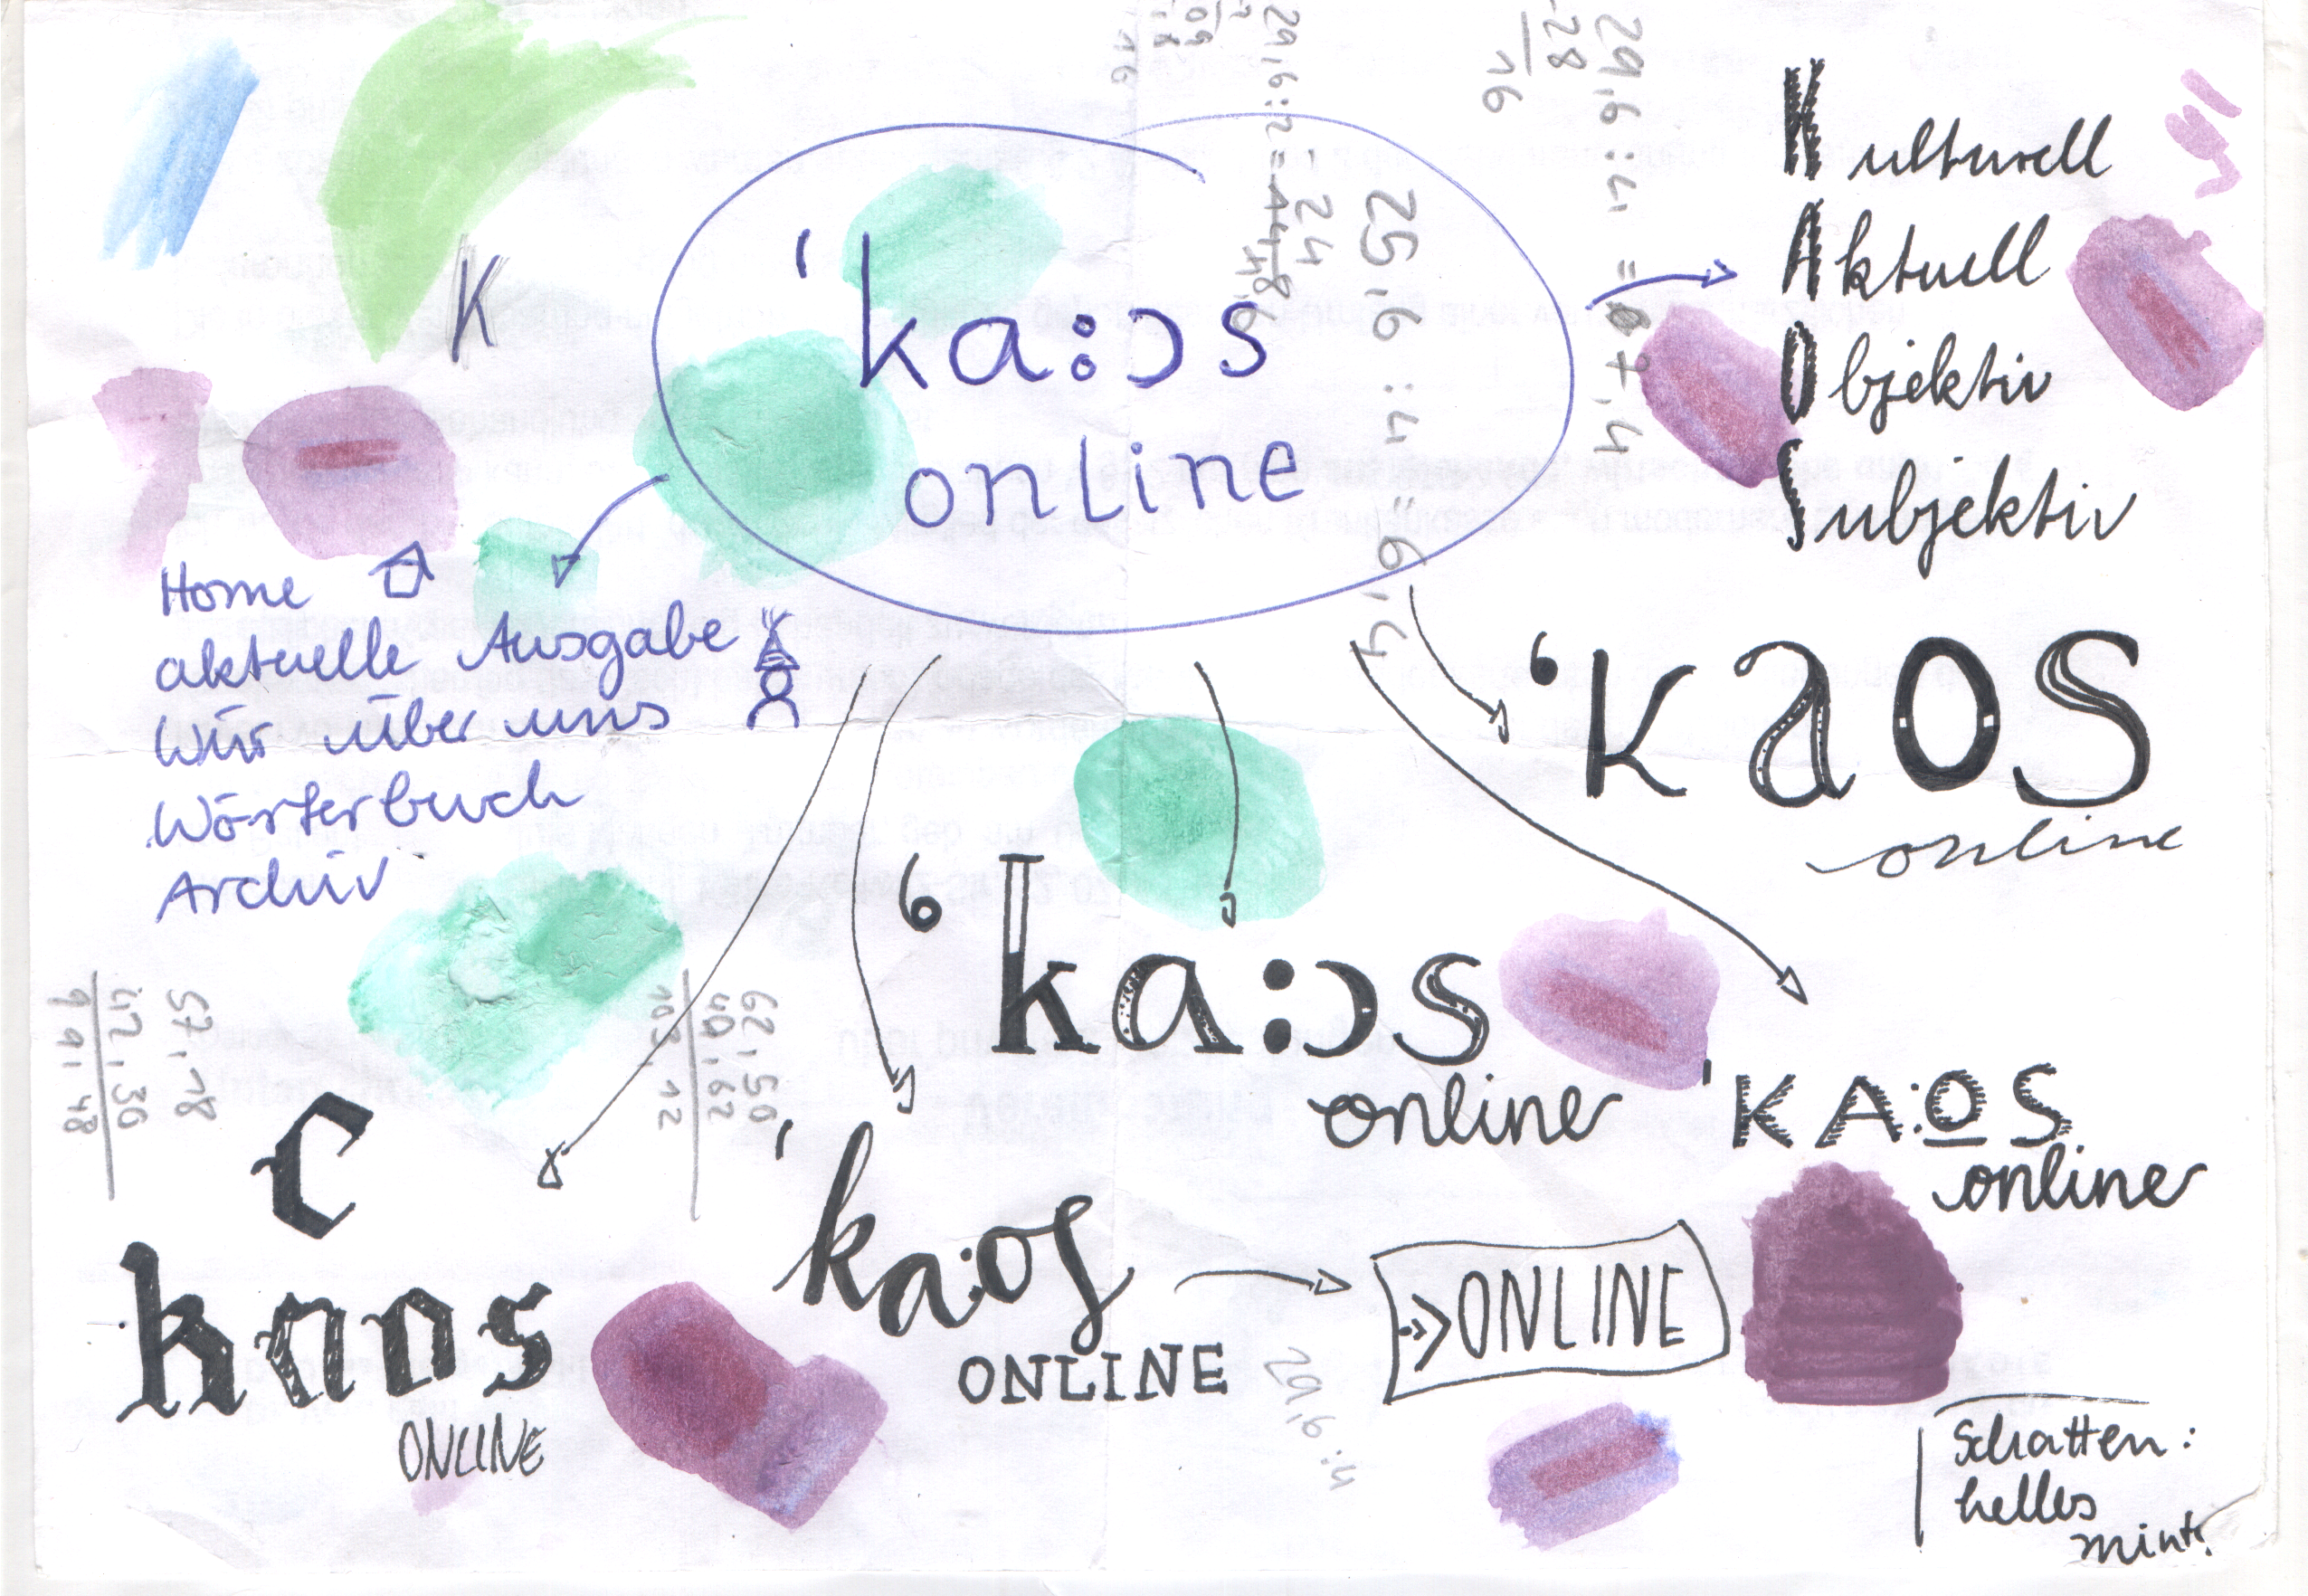 K
'ka:ɔs
online
Kulturell
Aktuell
Objektiv
Subjektiv
Home
aktuelle Ausgabe
Wir über uns
Wörterbuch
Archiv
'kaos
online
'ka:ɔs
online
'KA:OS
online
C
kaos
ONLINE
'ka:os
ONLINE
->> ONLINE
Schatten:
helles
mint?
29,6 : 4 = 07,4
-28
16
25,6 : 4 = 6,4
29,6 : 4
57,18
42,30
99,48
62,50
40,62
103,12